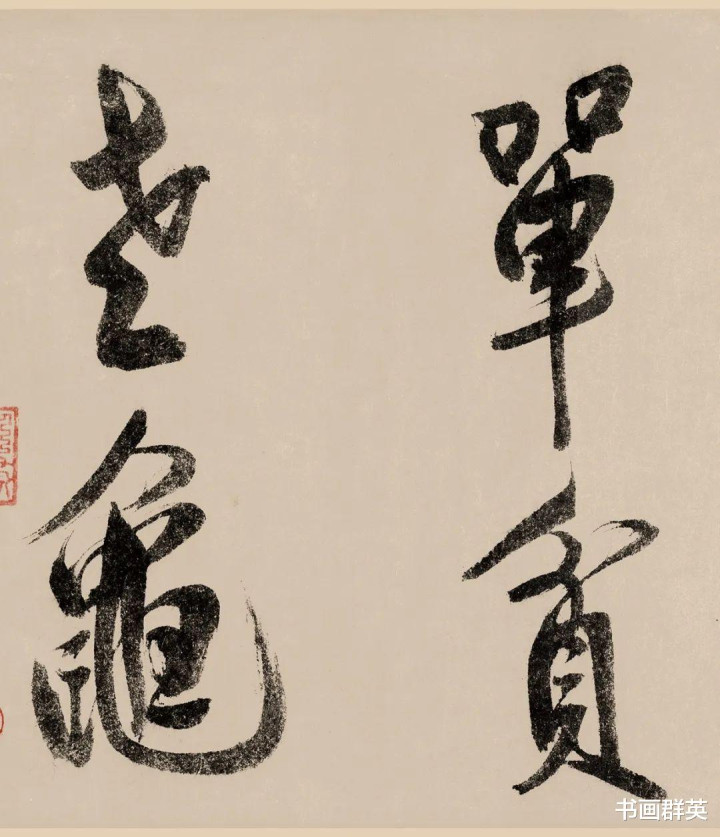 單貧
老龜
书画群英